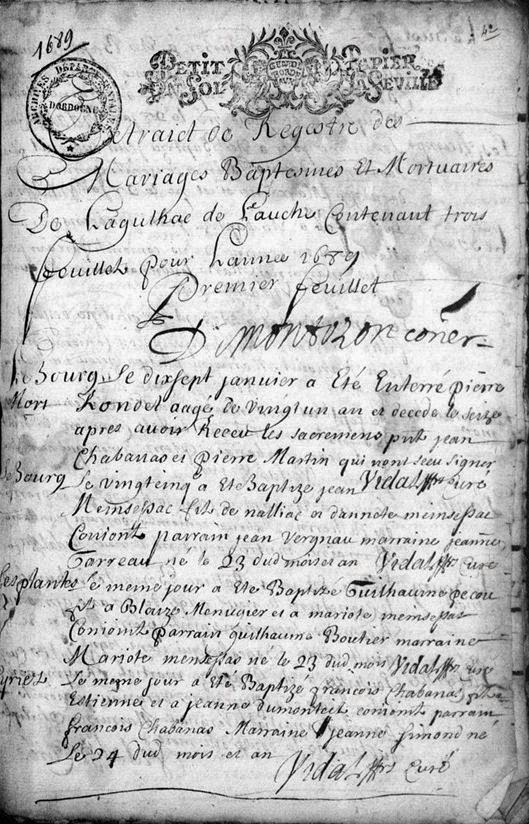 1689
PETIT PAPIER
UN SOL LA FEUILLE
ARCHIVES DÉPARTEMENTALES
DORDOGNE
Extraict de Regestre des
Mariages Baptesmes Et Mortuaires
De Lagulhac de Lauche Contenant trois
feuillet pour Lannee 1689
Premier feuillet
De Montozon coner
Le Bourg Le dixsept janvier a Eté Enterré Pierre
Mort Rondet aagé de vingtun an et decede le seize
apres avoir Receu les sacremens pnt jean
Chabanas et Pierre Martin qui nont sceu signer
Le Bourg Le vingtcinq a Eté Baptizé jean Vidal ptre Curé
Meinsessac fils de nalliac et dannote meinsessac
Conjoint parrain jean Vergnau marraine jeanne
Garreau né le 23 dud mois et an Vidal ptre Curé
Les plantes Le meme jour a Eté Baptizé Guilhaume
a Blaize Menusier et a mariote meinsessac
Conjoint Parrain guilhaume Boutier marraine
Mariote meinsessac né le 23 dud mois Vidal ptre Curé
Le meme jour a Eté Baptizé françois Chabanas
Estienne et a jeanne dumonteil conjoint parrain
françois Chabanas Marraine jeanne simond né
Le 24 dud mois et an
Vidal ptre Curé